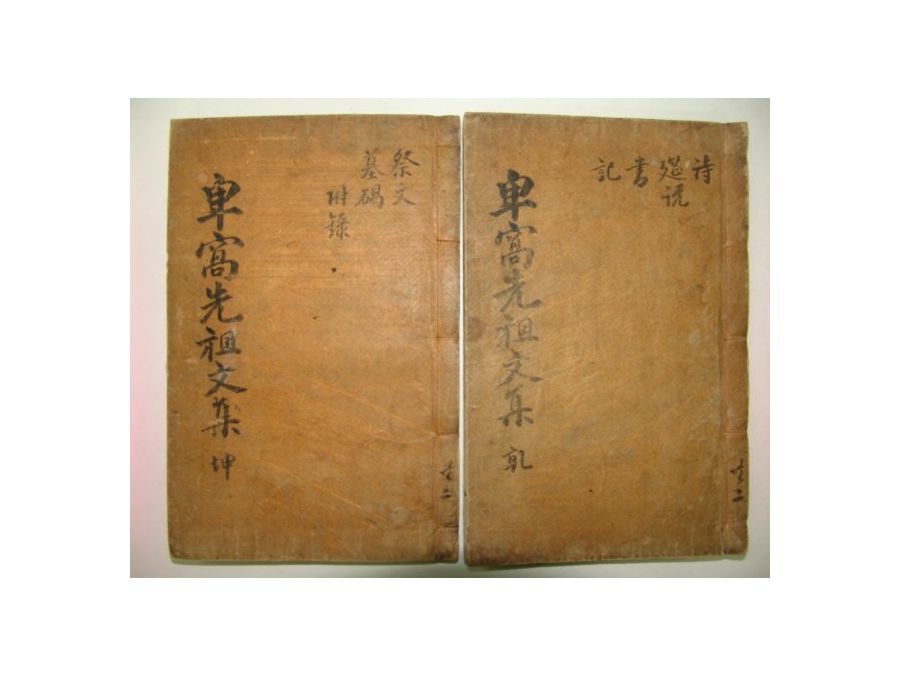 詩
說
書
記
卑窩先祖文集 乾
共二
祭文
墓碣
附錄
卑窩先祖文集 坤
共二